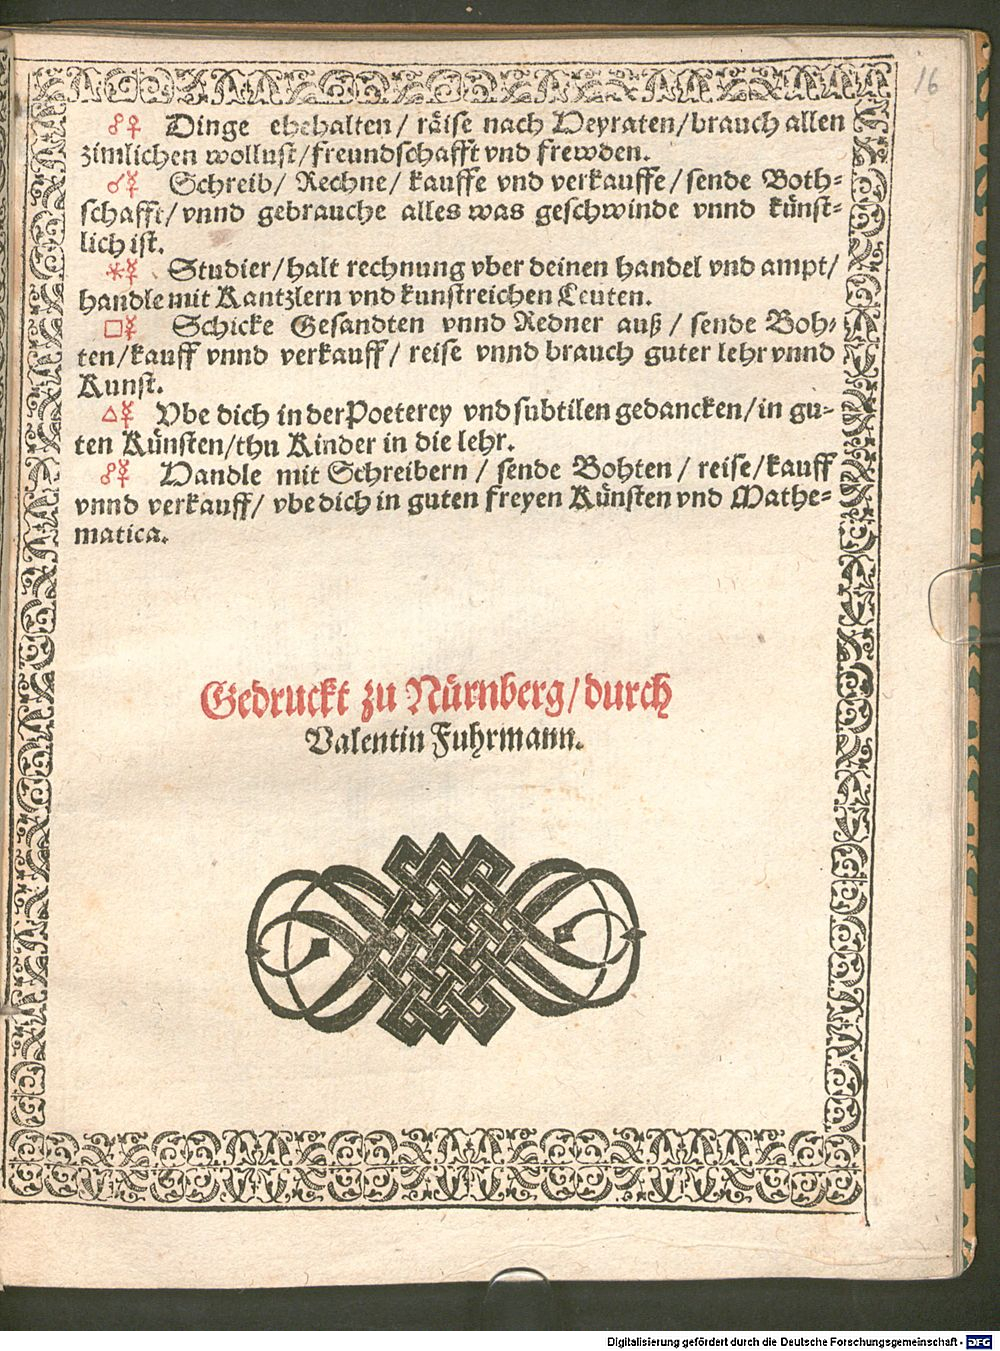 16
☍♀ Dinge ehehalten / räise nach Heyraten / brauch allen
zimlichen wollust / freundschafft vnd frewden.
☌☿ Schreib / Rechne / kauffe vnd verkauffe / sende Both⸗
schafft / vnnd gebrauche alles was geschwinde vnnd künst⸗
lich ist.
⚹☿ Studier / halt rechnung vber deinen handel vnd ampt /
handle mit Kantzlern vnd kunstreichen Leuten.
□☿ Schicke Gesandten vnnd Redner auß / sende Boh⸗
ten / kauff vnnd verkauff / reise vnnd brauch guter lehr vnnd
Kunst.
△☿ Vbe dich in der Poeterey vnd subtilen gedancken / in gu⸗
ten Künsten / thu Kinder in die lehr.
☍☿ Handle mit Schreibern / sende Bohten / reise / kauff
vnnd verkauff / vbe dich in guten freyen Künsten vnd Mathe⸗
matica.
Gedruckt zu Nürnberg / durch
Valentin Fuhrmann.
Digitalisierung gefördert durch die Deutsche Forschungsgemeinschaft - DFG